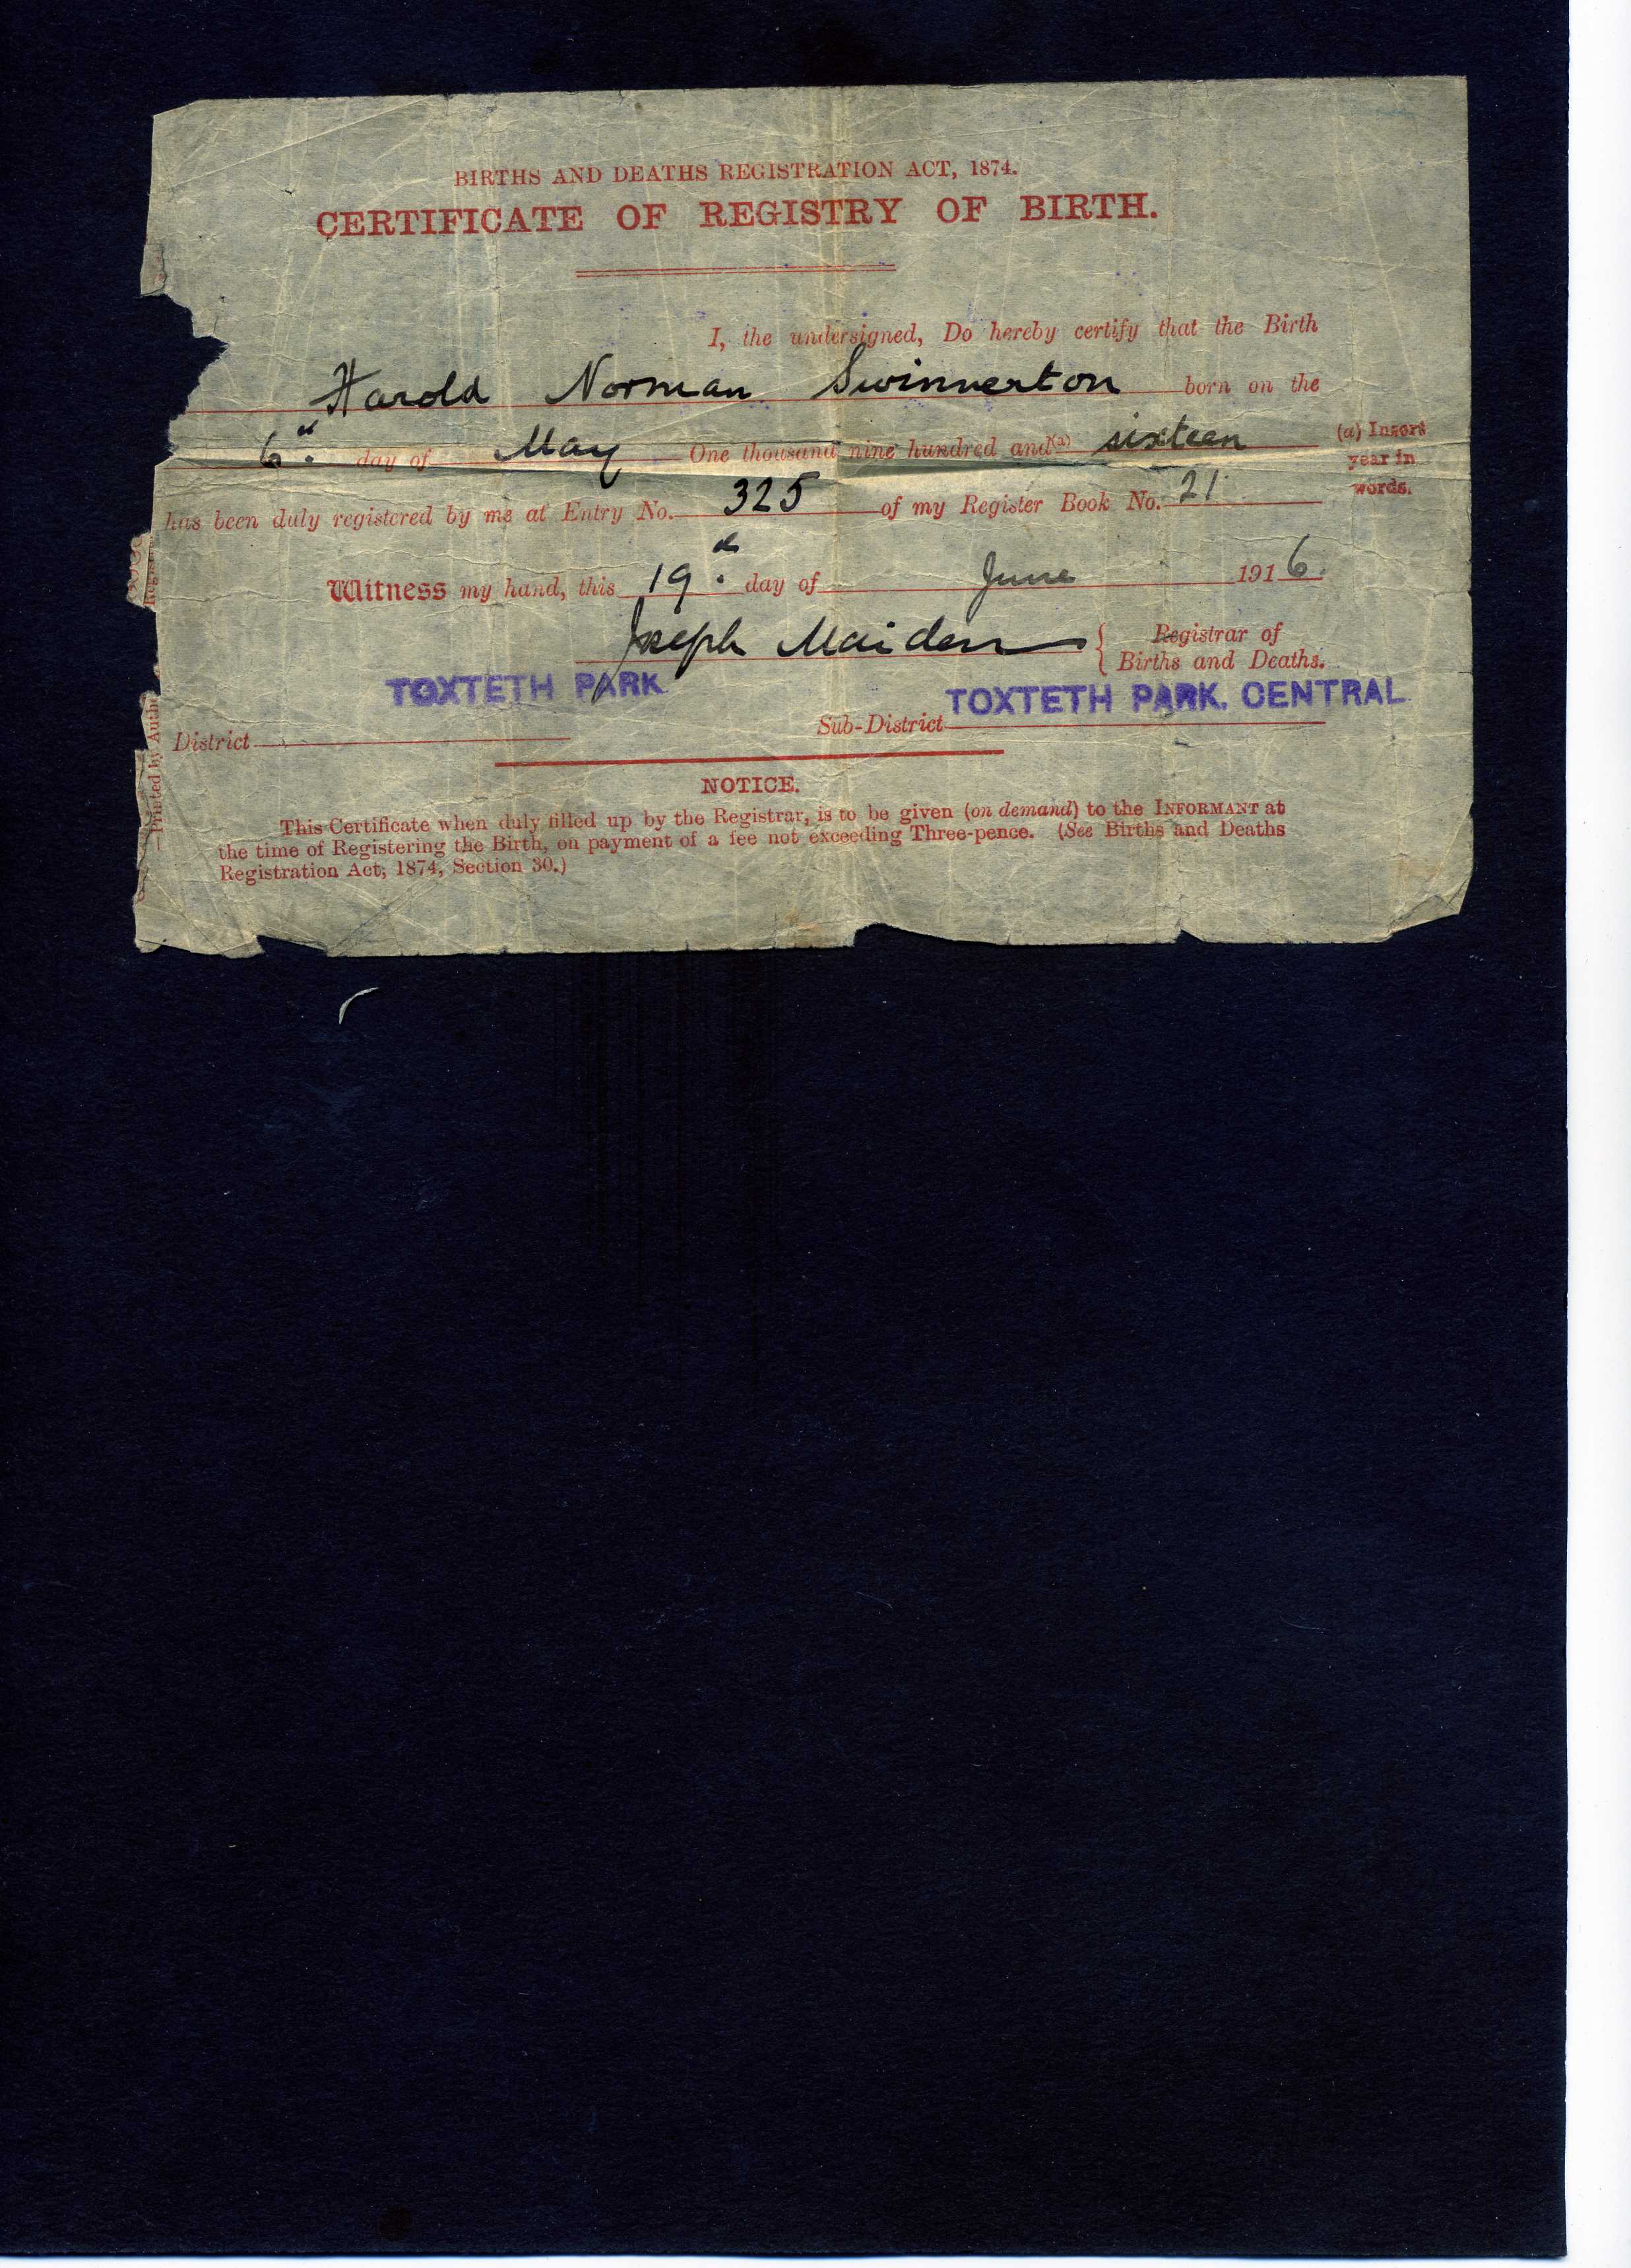 BIRTHS AND DEATHS REGISTRATION ACT, 1874.
CERTIFICATE OF REGISTRY OF BIRTH.
I, the undersigned, Do hereby certify that the Birth
Harold Norman Swinnerton born on the
6th day of May One thousand nine hundred and (a) sixteen
(a) Insert
year in
words.
has been duly registered by me at Entry No. 325 of my Register Book No. 21
Witness my hand, this 19th day of June 1916.
Joseph Maiden { Registrar of
Births and Deaths.
TOXTETH PARK TOXTETH PARK. CENTRAL
District Sub-District
NOTICE.
This Certificate when duly filled up by the Registrar, is to be given (on demand) to the INFORMANT at
the time of Registering the Birth, on payment of a fee not exceeding Three-pence. (See Births and Deaths
Registration Act, 1874, Section 30.)
—Printed by